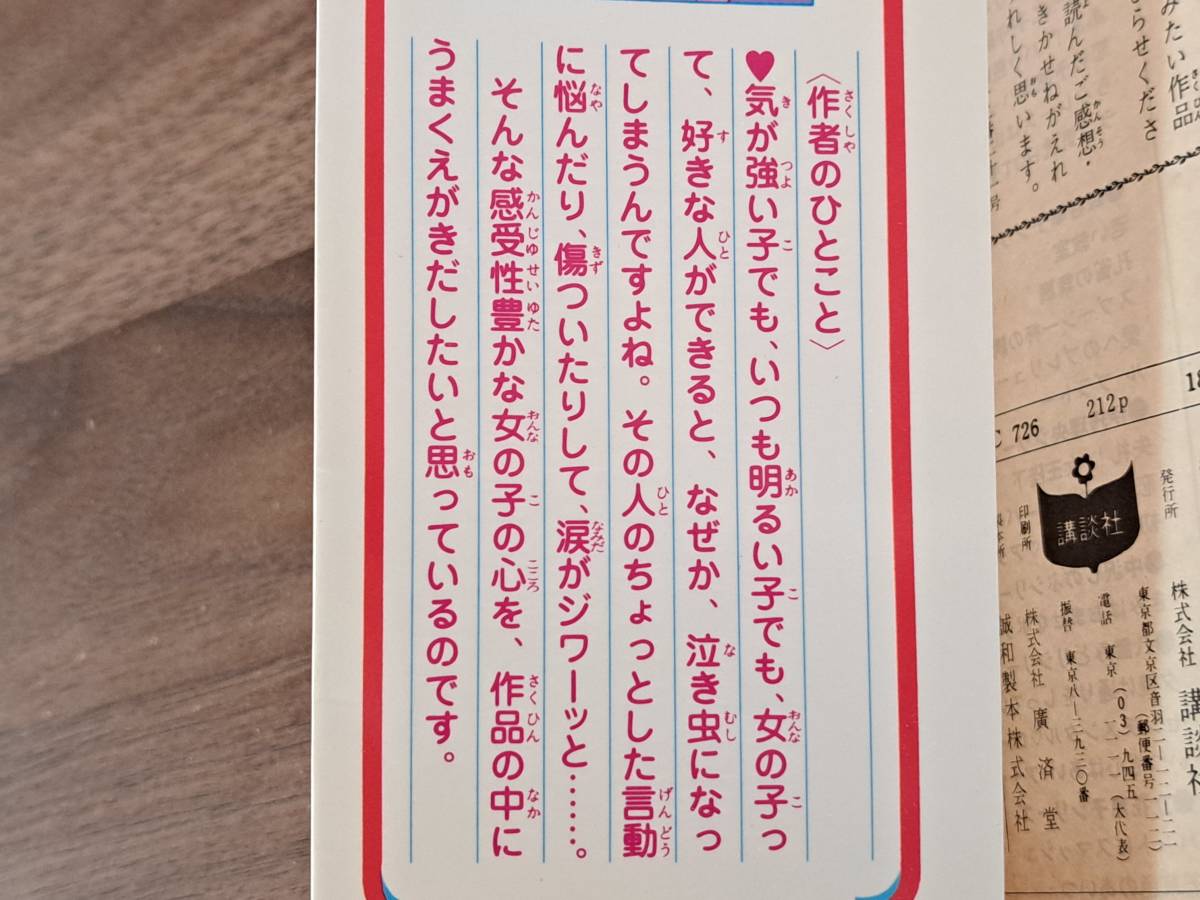 〈作者のひとこと〉
♥気が強い子でも、いつも明るい子でも、女の子っ
て、好きな人ができると、なぜか、泣き虫になっ
てしまうんですよね。その人のちょっとした言動
に悩んだり、傷ついたりして、涙がジワーッと……。
そんな感受性豊かな女の子の心を、作品の中に
うまくえがきだしたいと思っているのです。
みたい作品
らせくださ
読んだご感想・
きかせねがえれ
れしく思います。
C 726
212p
18
講談社
発行所
株式会社 講談社
東京都文京区音羽二―一二―二一
(郵便番号一一二)
電話 東京(03)九四五
一一一一(大代表)
振替 東京八―三九三〇番
印刷所
株式会社 廣済堂
製本所
誠和製本株式会社